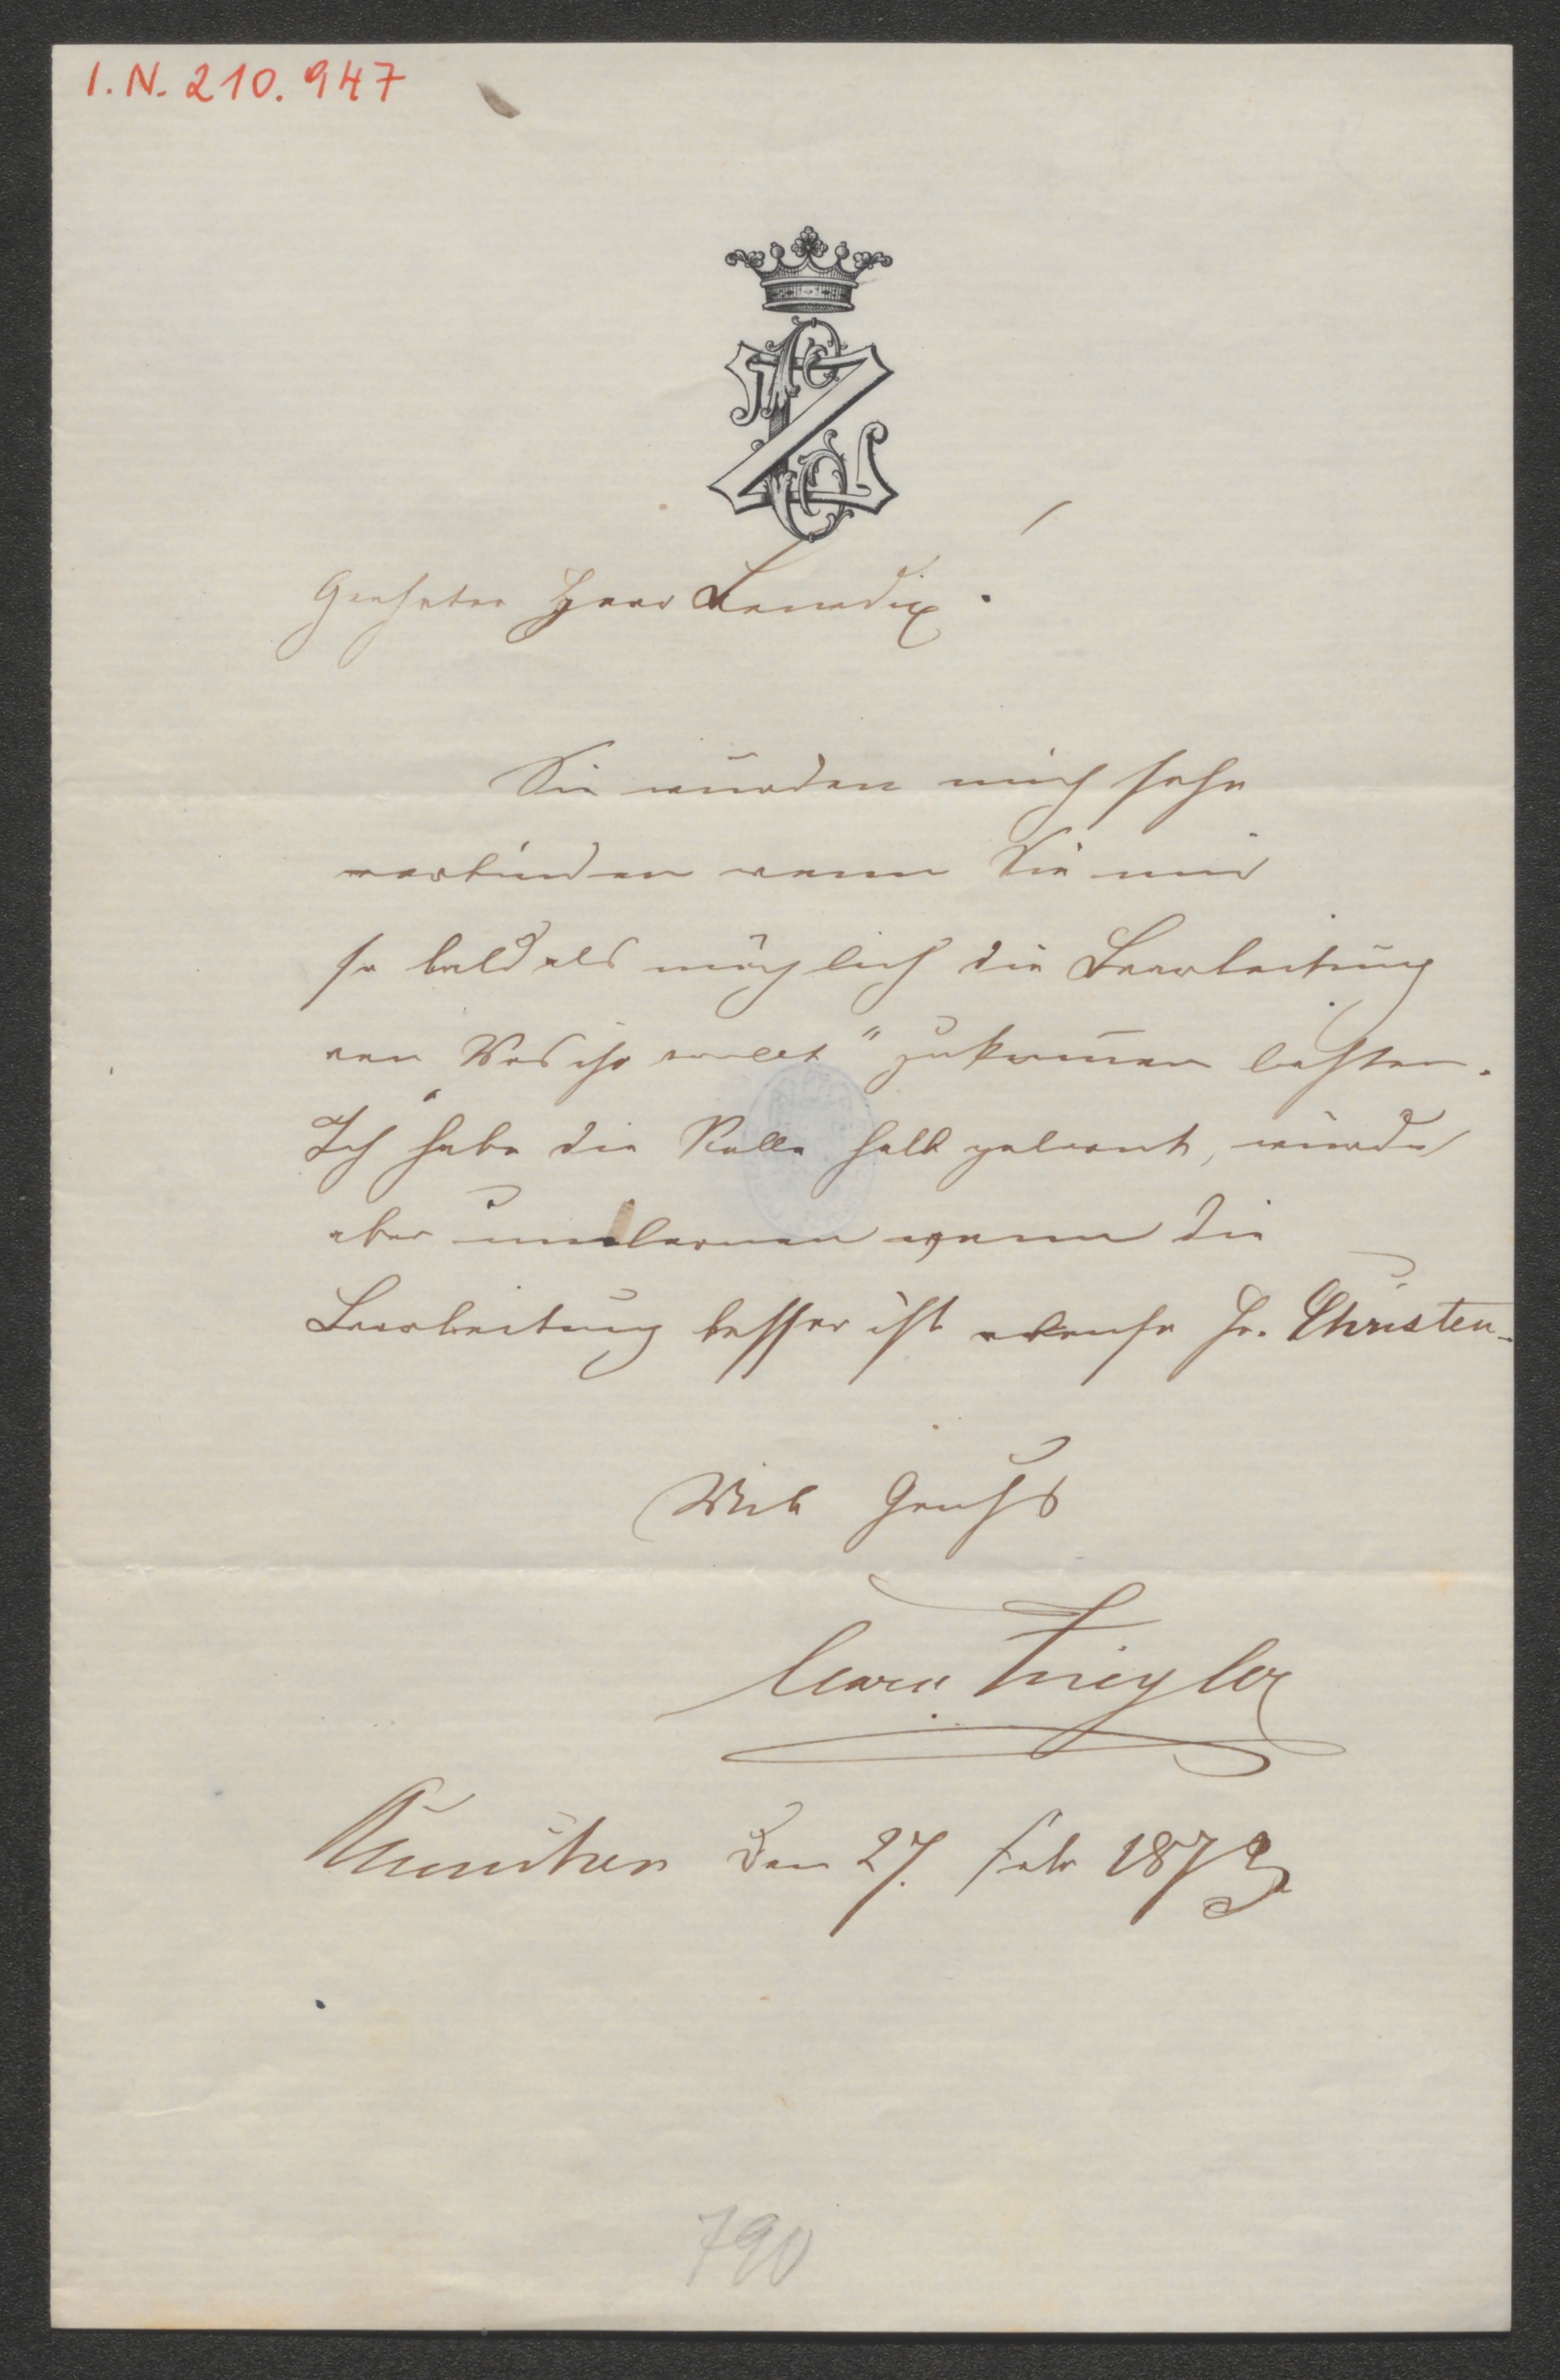 I.N. 210.947
Geehrter Herr Benedix!
Sie würden mich sehr
verbinden wenn Sie mir
so bald als möglich die Bearbeitung
von „Was ihr wollt“ zukommen laßten.
Ich habe die Rolle halb gelernt, würde
aber umlernen wenn die
Bearbeitung besser ist ebenso Hr. Christen.
Mit Gruß
Clara Ziegler
München den 27. Feb 1873
790